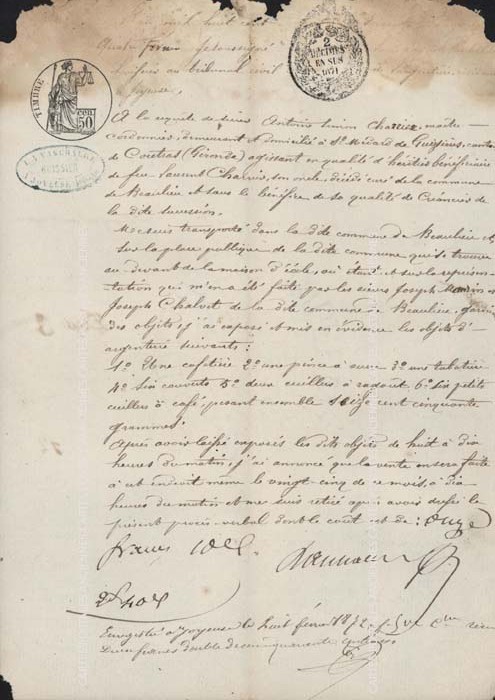 L'an mil huit cent
Quatre Février Je soussigné
huissier au tribunal civil
Joyeuse,
2
DÉCIMES
EN SUS
1871
TIMBRE
50 CEN.
HUISSIER
À JOYEUSE
A la requête de sieur Antoine Charrier, maître
cordonnier, demeurant & domicilié à St Médard de Guizières, canton
de Coutras (Gironde) agissant en qualité d'héritier bénéficiaire
de feu Laurent Charrier, son oncle, décédé curé de la commune
de Beaulieu & sous le bénéfice de sa qualité de Créancier de
la dite succession.
Me suis transporté dans la dite commune de Beaulieu et
sur la place publique de la dite commune qui se trouve
au devant de la maison d'école, où étant & sur la représen-
tation qui m'en a été faite par les sieurs Joseph
Joseph Chalvet de la dite commune de Beaulieu, gardiens
des objets, j'ai exposé et mis en évidence les objets d'
argenterie suivants:
1° Une cafetière 2° une pince à sucre 3° une tabatière
4° Six couverts 5° deux cuillers à ragout 6° six petits
cuillers à café pesant ensemble seize cent cinquante
grammes.
Après avoir laissé exposés les dits objets de huit à dix
heures du matin, j'ai annoncé que la vente en sera faite
à cet endroit même le vingt-cinq de ce mois à dix
heures du matin et me suis retiré après avoir dressé le
présent procès-verbal dont le coût est de: Onze
francs 10 c.
2f 40c
Enregistré à Joyeuse le huit février 1872, f° Cse
Deux francs double décime cinquante centimes